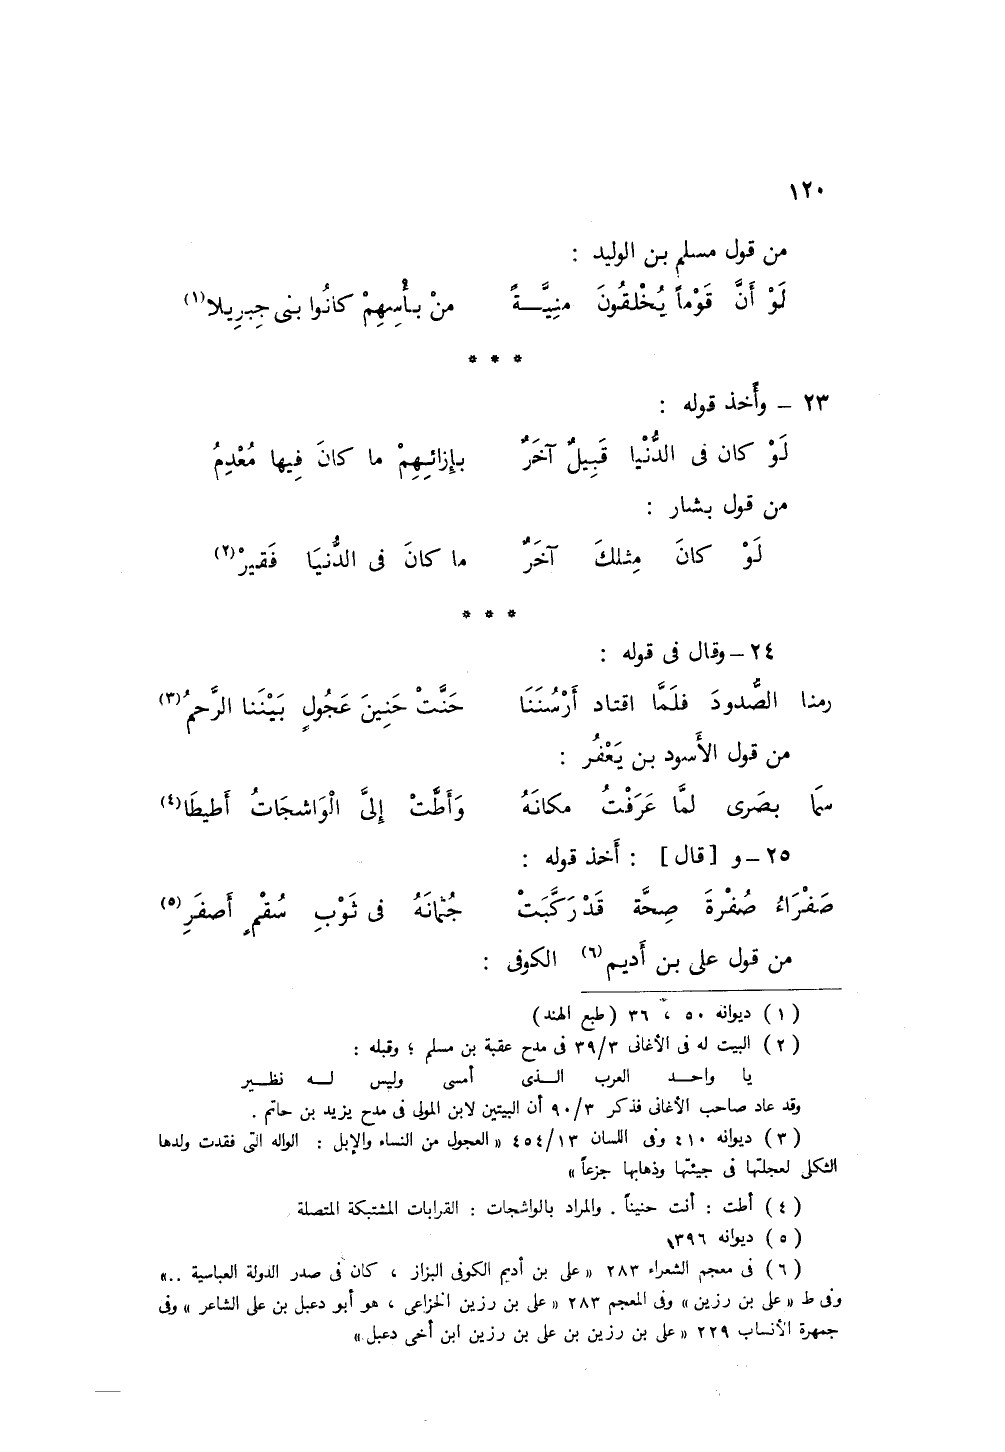 ١٢٠
من قول مسلم بن الوليد :
لَوْ أَنَّ قَوْماً يُخْلقُونَ منِيَّـــةً من بأْسِهِمْ كانُوا بنى جِبرِيلا(١)
* * *
٢٣ – وأَخذ قوله :
لَوْ كان فى الدُّنْيا قَبِيلٌ آخَرٌ بإِزائِهِمْ ما كانَ فِيها مُعْدِمُ
من قول بشار :
لَوْ كانَ مِثلكَ آخَرٌ ما كانَ فى الدُّنيَا فَقيرْ(٢)
* * *
٢٤ – وقال فى قوله :
رمنا الصُّدودَ فلَمَّا اقتاد أَرْسُنَنَا حَنَّتْ حَنِينَ عَجُولٍ بَيْنَنا الرَّحمُ(٣)
من قول الأَسود بن يَعْفُر :
سمَا بصَرى لمَّا عَرَفْتُ مكانَهُ وَأَطَّتْ إِلىَّ الْوَاشجَاتُ أَطيطَا(٤)
٢٥ – و [ قال ] : أَخذ قوله :
صَفْرَاءُ صُفْرةَ صِحَّة قَدْ رَكَّبَتْ جُثمانَهُ فى ثَوْبِ سُقْمٍ أَصفَرِ(٥)
من قول على بن أَديم(٦) الكوفى :
( ١ ) ديوانه ٥٠ ، ٣٦ (طبع الهند)
( ٢ ) البيت له فى الأغانى ٣٩/٣ فى مدح عقبة بن مسلم ؛ وقبله :
يا واحـــد العرب الـــذى أمسى وليس لـــه نظـــير
وقد عاد صاحب الأغانى فذكر ٩٠/٣ أن البيتين لابن المولى فى مدح يزيد بن حاتم .
( ٣ ) ديوانه ٤١٠ وفى اللسان ٤٥٤/١٣ « العجول من النساء والإبل : الواله التى فقدت ولدها
الثكلى لعجلتها فى جيئتها وذهابها جزعاً »
( ٤ ) أطت : أنت حنيناً . والمراد بالواشجات : القرابات المشتبكة المتصلة
( ٥ ) ديوانه ٣٩٦
( ٦ ) فى معجم الشعراء ٢٨٣ « على بن أديم الكوفى البزاز ، كان فى صدر الدولة العباسية .. »
وفى ط « على بن رزين » وفى المعجم ٢٨٣ « على بن رزين الخزاعى ، هو أبو دعبل بن على الشاعر » وفى
جمهرة الأنساب ٢٢٩ « على بن رزين بن على بن رزين ابن أخى دعبل »